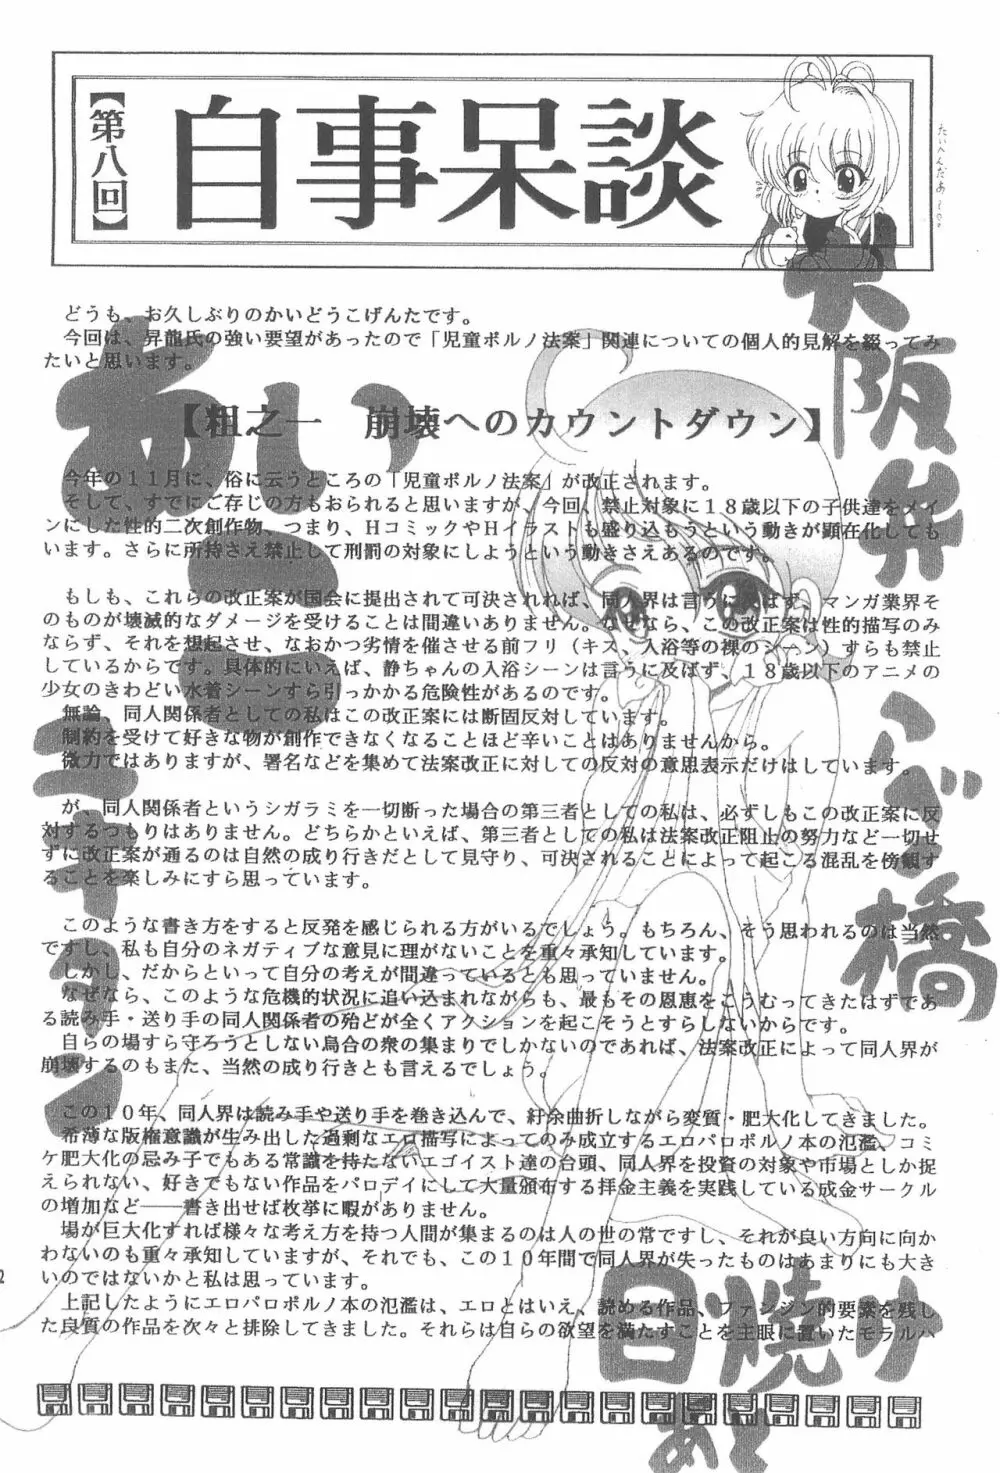 【第八回】
自事呆談
たいへんだぁ～。。
どうも、お久しぶりのかいどうこげんたです。
今回は、昇龍氏の強い要望があったので「児童ポルノ法案」関連についての個人的見解を綴ってみ
たいと思います。
【粗之一　崩壊へのカウントダウン】
今年の１１月に、俗に云うところの「児童ポルノ法案」が改正されます。
そして、すでにご存じの方もおられると思いますが、今回、禁止対象に１８歳以下の子供達をメイ
ンにした性的二次創作物、つまり、ＨコミックやＨイラストも盛り込もうという動きが顕在化しても
います。さらに所持さえ禁止して刑罰の対象にしようという動きさえあるのです。
もしも、これらの改正案が国会に提出されて可決されれば、同人界は言うに及ばず、マンガ業界そ
のものが壊滅的なダメージを受けることは間違いありません。なぜなら、この改正案は性的描写のみ
ならず、それを想起させ、なおかつ劣情を催させる前フリ（キス、入浴等の裸のシーン）すらも禁止
しているからです。具体的にいえば、静ちゃんの入浴シーンは言うに及ばず、１８歳以下のアニメの
少女のきわどい水着シーンすら引っかかる危険性があるのです。
無論、同人関係者としての私はこの改正案には断固反対しています。
制約を受けて好きな物が創作できなくなることほど辛いことはありませんから。
微力ではありますが、署名などを集めて法案改正に対しての反対の意思表示だけはしています。
が、同人関係者というシガラミを一切断った場合の第三者としての私は、必ずしもこの改正案に反
対するつもりはありません。どちらかといえば、第三者としての私は法案改正阻止の努力など一切せ
ずに改正案が通るのは自然の成り行きだとして見守り、可決されることによって起こる混乱を傍観す
ることを楽しみにすら思っています。
このような書き方をすると反発を感じられる方がいるでしょう。もちろん、そう思われるのは当然
ですし、私も自分のネガティブな意見に理がないことを重々承知しています。
しかし、だからといって自分の考えが間違っているとも思っていません。
なぜなら、このような危機的状況に追い込まれながらも、最もその恩恵をこうむってきたはずであ
る読み手・送り手の同人関係者の殆どが全くアクションを起こそうとすらしないからです。
自らの場すら守ろうとしない烏合の衆の集まりでしかないのであれば、法案改正によって同人界が
崩壊するのもまた、当然の成り行きとも言えるでしょう。
この１０年、同人界は読み手や送り手を巻き込んで、紆余曲折しながら変質・肥大化してきました。
希薄な版権意識が生み出した過剰なエロ描写によってのみ成立するエロパロポルノ本の氾濫、コミ
ケ肥大化の忌み子でもある常識を持たないエゴイスト達の台頭、同人界を投資の対象や市場としか捉
えられない、好きでもない作品をパロデイにして大量頒布する拝金主義を実践している成金サークル
の増加など――書き出せば枚挙に暇がありません。
場が巨大化すれば様々な考え方を持つ人間が集まるのは人の世の常ですし、それが良い方向に向か
わないのも重々承知していますが、それでも、この１０年間で同人界が失ったものはあまりにも大き
いのではないかと私は思っています。
上記したようにエロパロポルノ本の氾濫は、エロとはいえ、読める作品、ファンジン的要素を残し
た良質の作品を次々と排除してきました。それらは自らの欲望を満たすことを主眼に置いたモラルハ
大阪弁
へび橋
日焼け
あと
2